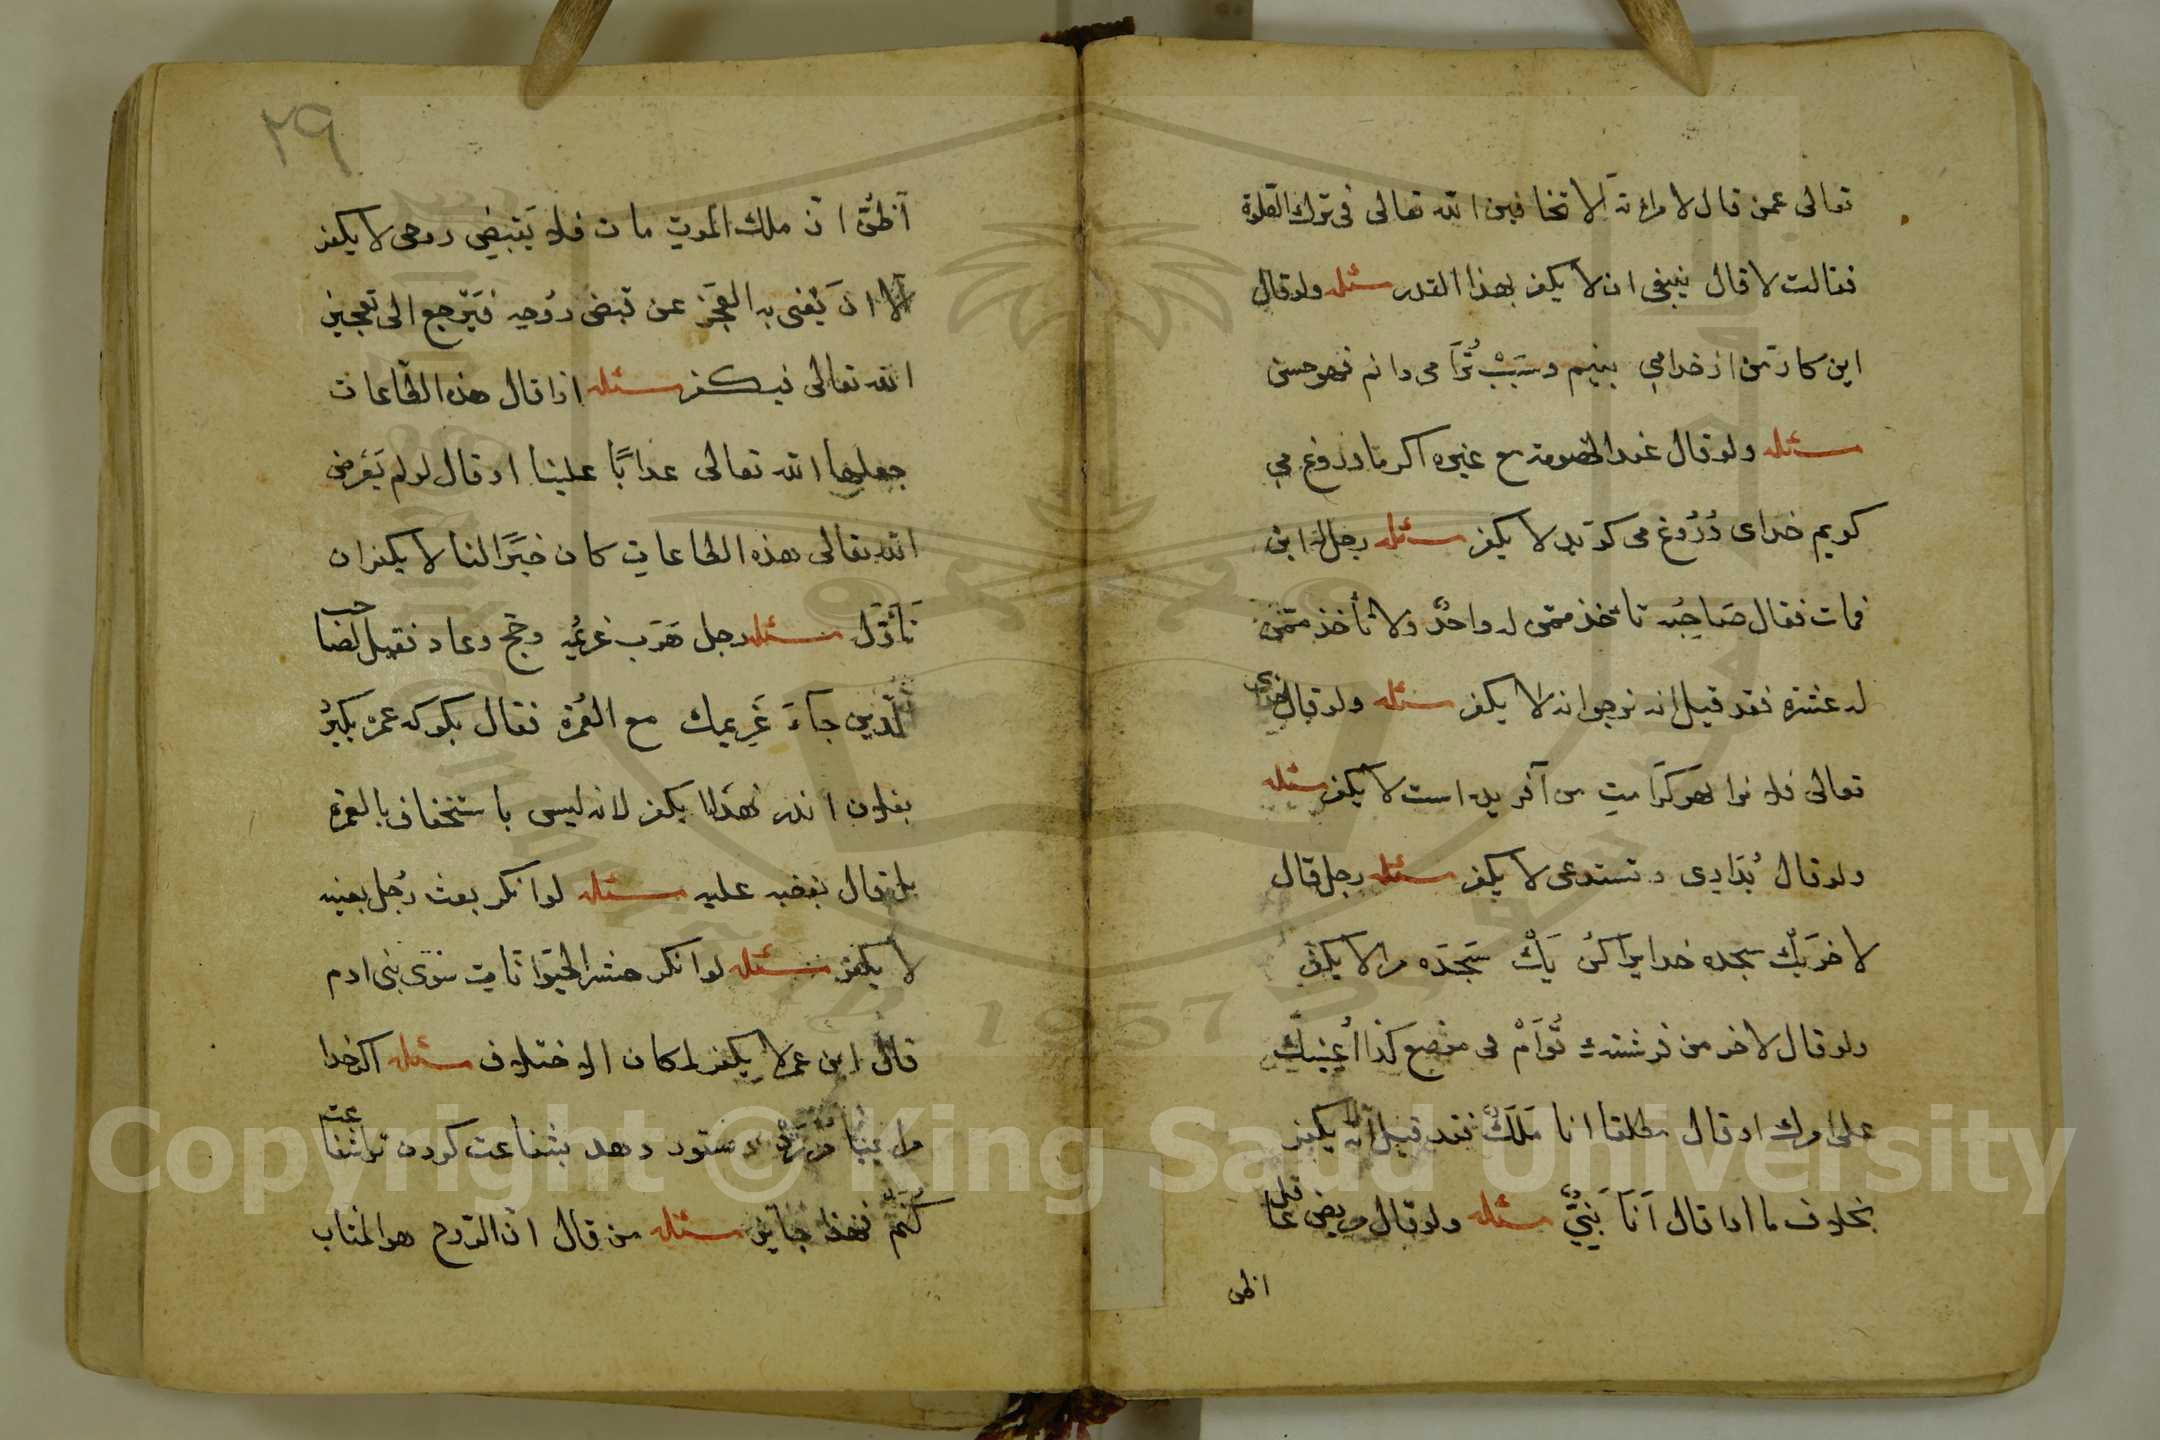 تعالى عمن قال لامرأته ألا تخافين الله تعالى في ترك الصلوة
فقالت لا قال ينبغي ان لا يكفر بهذا القدر مسئله ولو قال
اين كار من از خدا مي بينم وسبب ترا مى دانم فهو حسن
مسئله ولو قال عند الخصومة مع غيره اكر ما دروغ مي
كويم خداى دروغ مى كويد لا يكفر مسئله رجل له ابن
فمات فقال صاحبه تأخذ ممن له واحد ولا تأخذ ممن
له عشرة فقد قيل انه نرجو انه لا يكفر مسئله ولو قال خداى
تعالى فلانرا بهر كرامت من آفريده است لا يكفر مسئله
ولو قال وتستدعى لا يكفر مسئله رجل قال
لاخر يك سجده خدايرا كن يك سجده مرا لا يكفر
ولو قال لاخر من فرشته توام فى موضع كذا أعينك
على امرك او قال مطلقا انا ملك فقد قيل انه يكفر
بخلاف ما اذا قال أنا نبي مسئله ولو قال مريض قل عا
اظن
٢٩
أظن ان ملك الموت مات فلا يقبض روحى لا يكفر
الا ان يعنى به العجز عن قبض روحه فيرجع الى تعجيز
الله تعالى فيكفر مسئله اذا قال هذه الطاعات
جعلها الله تعالى عذابا علينا او قال لو لم يفرض
الله تعالى هذه الطاعات كان خيرا لنا لا يكفر ان
تأول مسئله رجل هرب غريمه وحج وعاد فقيل لصاحب
الدين جاء غريمك مع العمرة فقال بكو كه عمره بكير
بفلان اندر فهذا لا يكفر لانه ليس باستخفاف بالعمرة
بل قال بغضبه عليه مسئله لو انكر بعث رجل بعينه
لا يكفر مسئله لو انكر حشر الحيوانات سوى بنى ادم
قال ابن عمر لا يكفر لمكان الاختلاف مسئله اكر خدا
مرا دستورى دهد بشفاعت كردن ترا شفاعت
كنم فهذا جايز مسئله من قال ان الروح هو المثاب
Copyright © King Saud University
1957